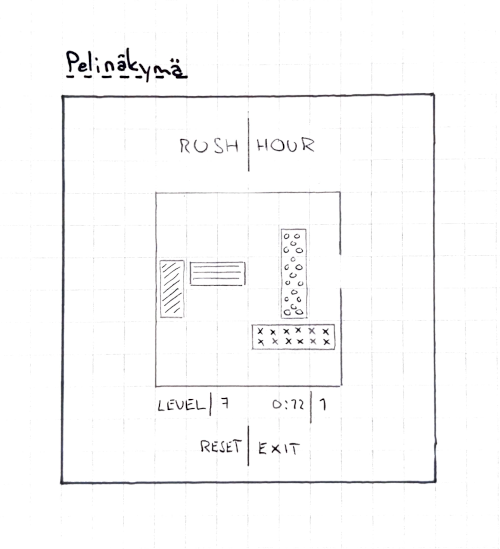 Pelinäkymä
RUSH | HOUR
LEVEL | 7 0:22 | 1
RESET | EXIT